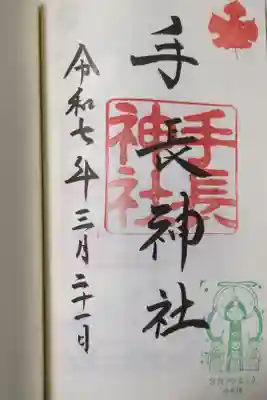 手長神社
手長
神社
令和七年三月二十一日